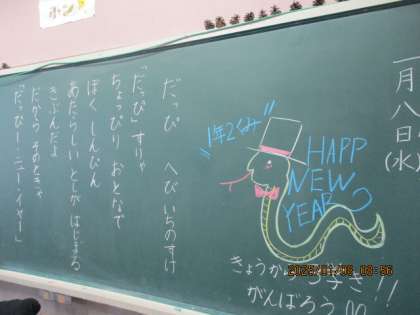 一月八日(水)
"1年2くみ"
HAPP
NEW
YEAR
きょうから3学き!!
がんばろう
だっぴ　へびいちのすけ
「だっぴ」すりゃ
ちょっぴり　おとなで
ぼく　しんぴん
あたらしい　としが　はじまる
きぶんだよ
だから　そのときゃ
「だっぴー・ニュー・イヤー」
2025/01/08 08:56